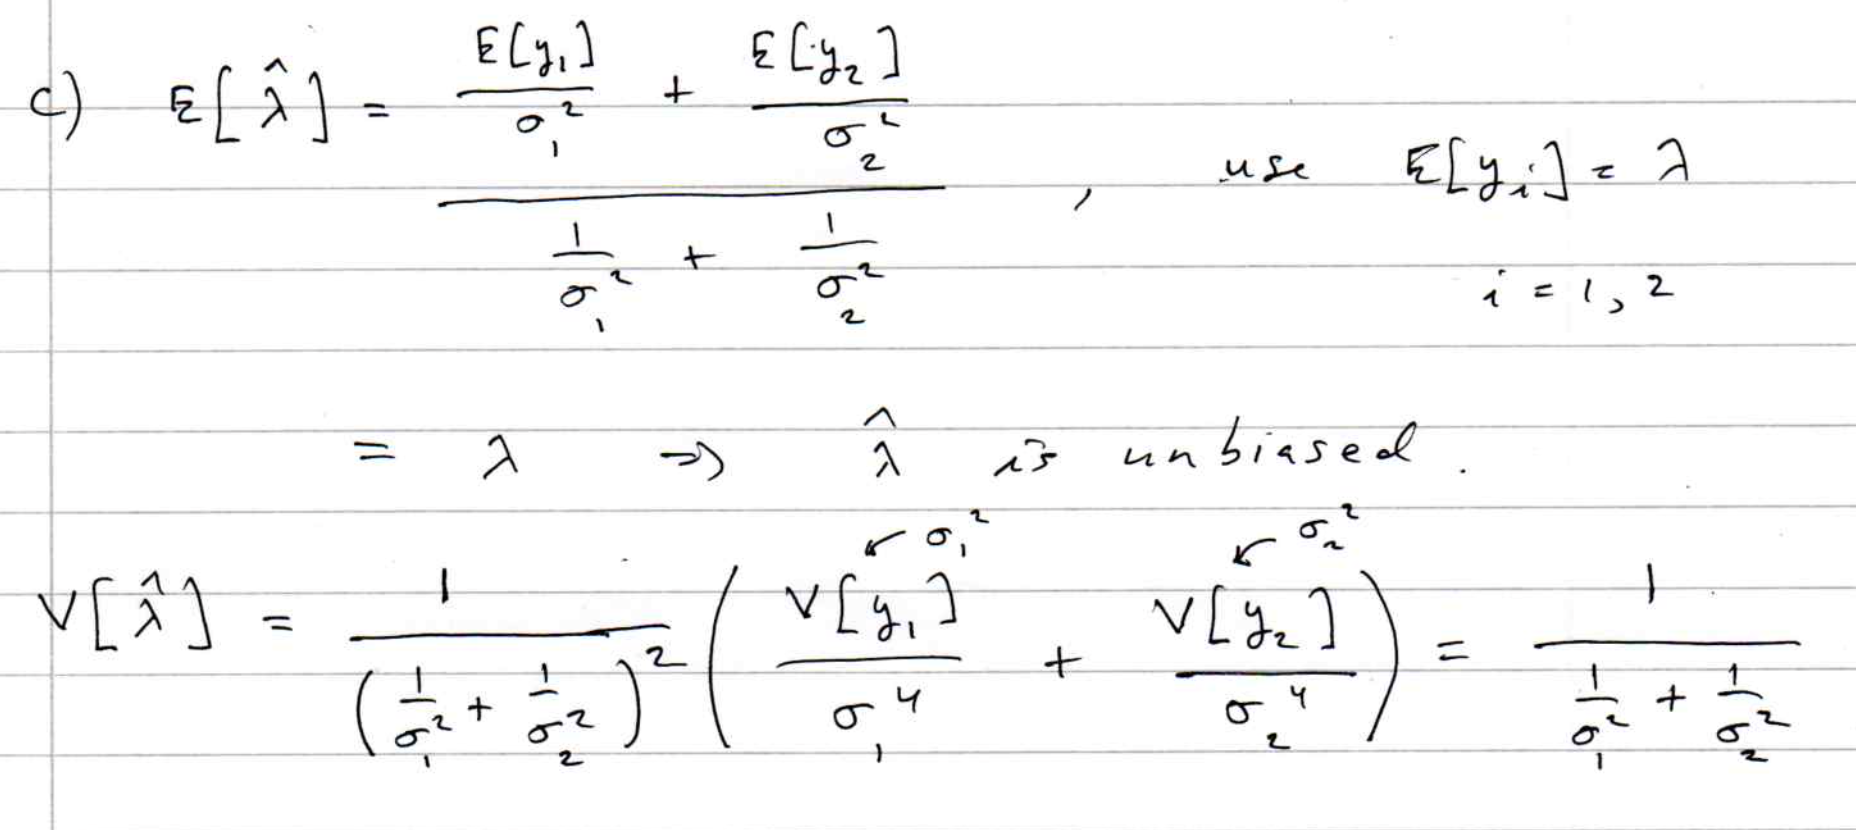 c) E[λ̂] = (E[y₁]/σ₁² + E[y₂]/σ₂²) / (1/σ₁² + 1/σ₂²) , use E[yᵢ] = λ
i = 1, 2
= λ ⇒ λ̂ is unbiased.
↙ σ₁² ↙ σ₂²
V[λ̂] = 1/(1/σ₁² + 1/σ₂²)² (V[y₁]/σ₁⁴ + V[y₂]/σ₂⁴) = 1/(1/σ₁² + 1/σ₂²)